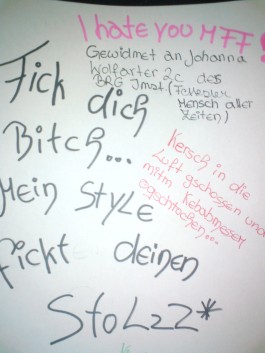 I hate you MFF!
Gewidmet an Johanna
Wolfarter 2c des
BRG Imst. (
Mensch aller
Zeiten)
Fick
dich
Bitch...
Mein STYLE
fickt deinen
StoLzZ*
Kersch in die
Luft gschossen und
mitm Kebabmesser
ogschtochen...